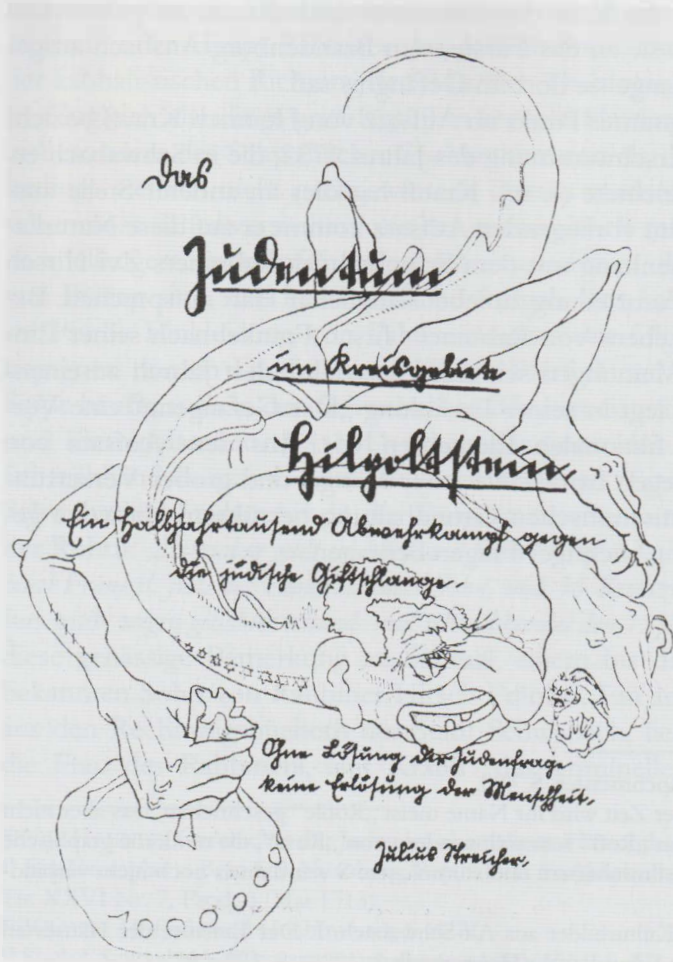 das
Judentum
im Kreisgebiete
Hilpoltstein.
Ein Halbjahrtausend Abwehrkampf gegen
die jüdische Giftschlange.
Ohne Lösung der Judenfrage
keine Erlösung der Menschheit.
Julius Streicher.